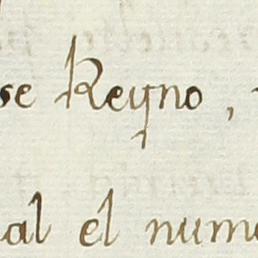 se Reyno,
al el nume